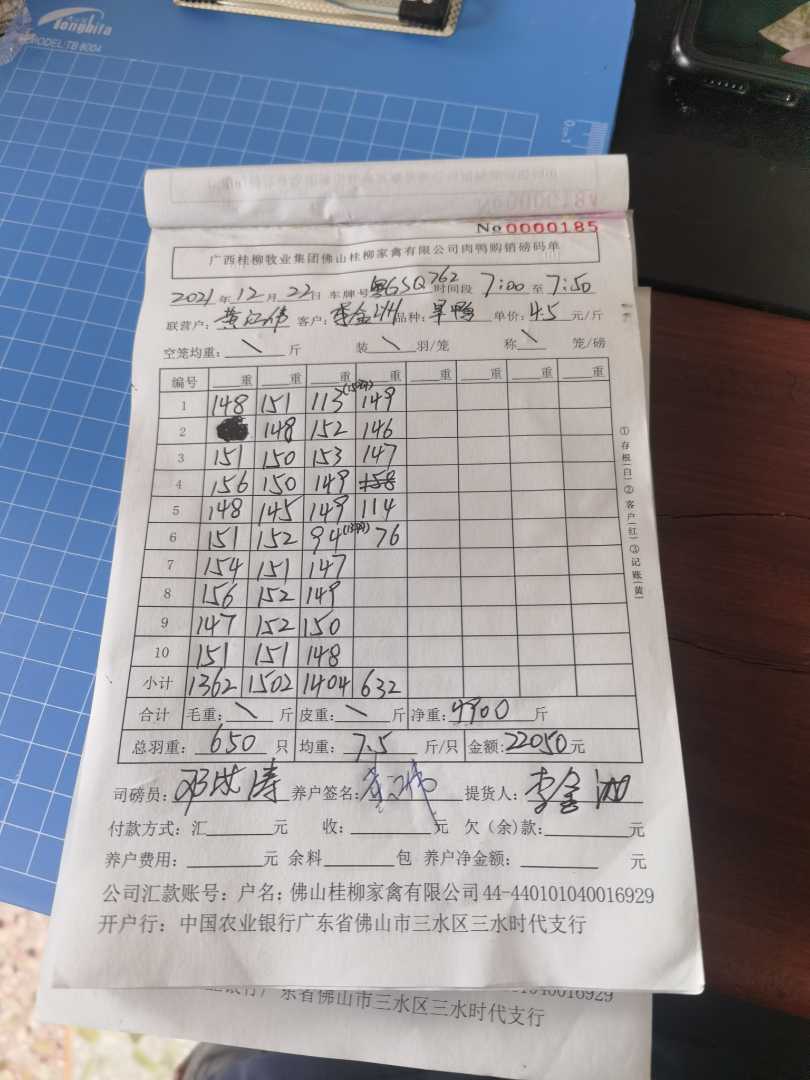 Longbita
MODEL:TB 8004
No 0000185
广西桂柳牧业集团佛山桂柳家禽有限公司肉鸭购销磅码单
2021年12月22日 车牌号粤GSQ762时间段 7:00至7:50
联营户: 黄江伟 客户: 李金 品种: 旱鸭 单价: 4.5 元/斤
空笼均重: \ 斤 装 \ 羽/笼 称 \ 笼/磅
编号 重 重 重 重 重 重 重 重
1 148 151 113 149
2 148 152 146
3 151 150 153 147
4 156 150 149 158
5 148 145 149 114
6 151 152 94 76
7 154 151 147
8 156 152 149
9 147 152 150
10 151 151 148
小计 1362 1502 1404 632
合计 毛重: \ 斤 皮重: \ 斤 净重: 4900 斤
总羽重: 650 只 均重: 7.5 斤/只 金额: 22050元
司磅员: 邓 涛 养户签名: 提货人: 李金
付款方式: 汇 元 收: 元 欠(余)款: 元
养户费用: 元 余料 包 养户净金额: 元
公司汇款账号: 户名: 佛山桂柳家禽有限公司 44-440101040016929
开户行: 中国农业银行广东省佛山市三水区三水时代支行
①存根(白)②客户(红)③记账(黄)
银行广东省佛山市三水区三水时代支行
1040016929